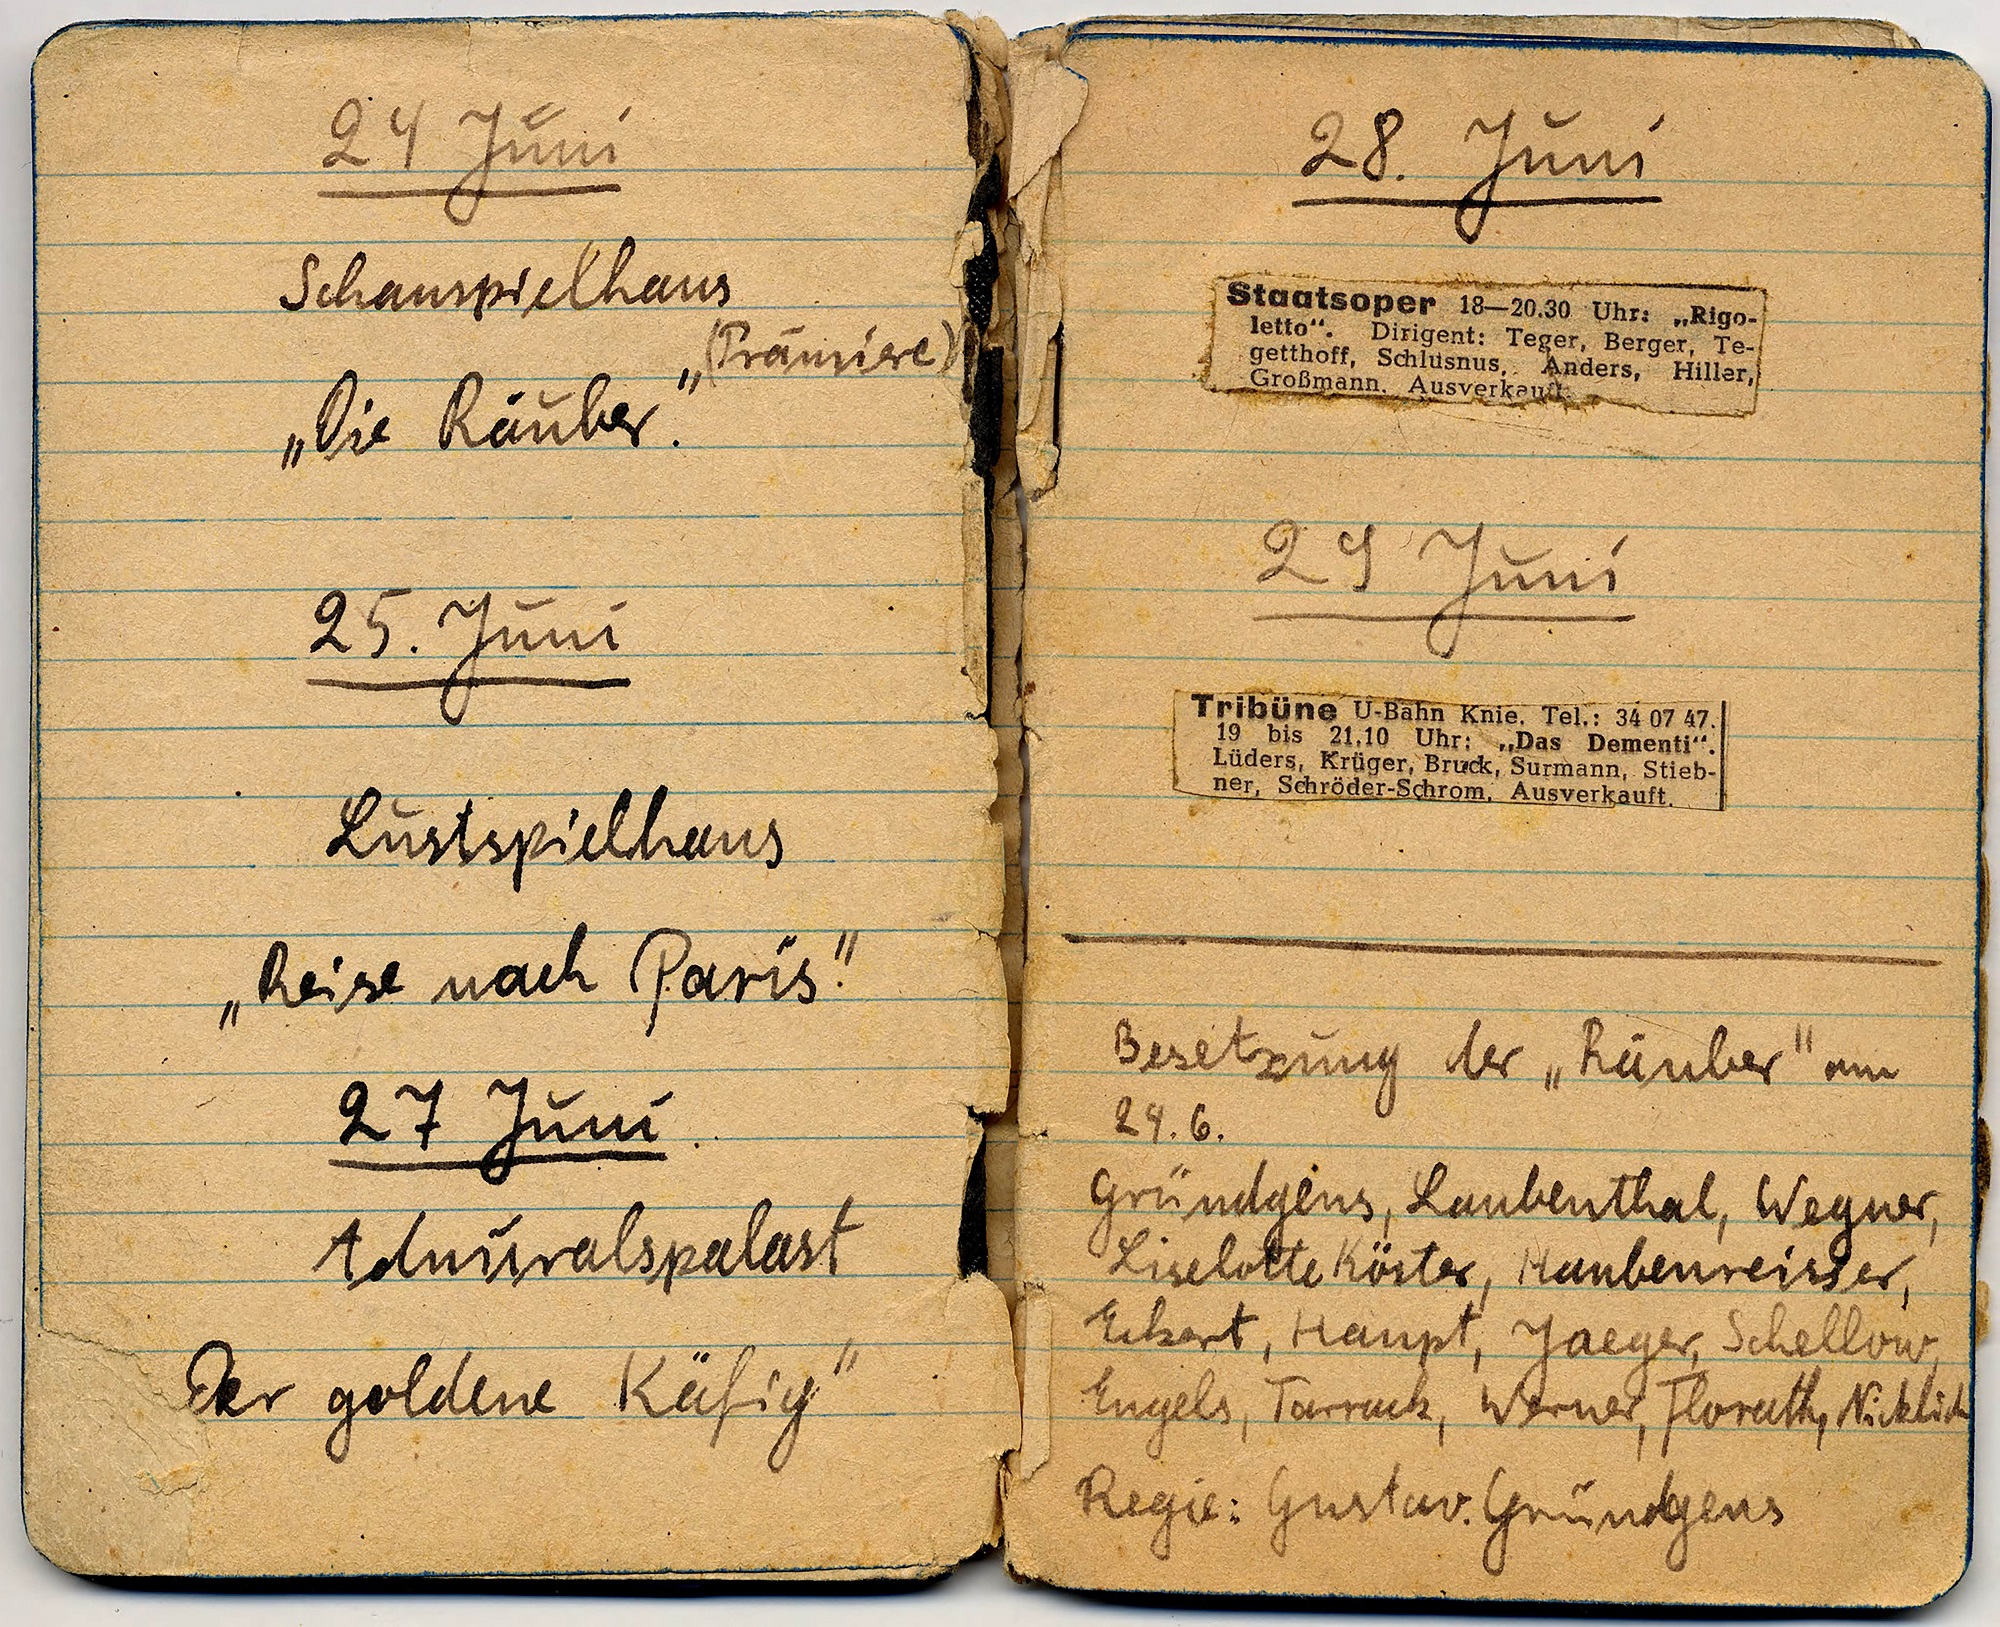 24 Juni
Schauspielhaus
(Prämiere)
„Die Räuber."
25. Juni
Lustspielhaus
„Reise nach Paris."
27 Juni.
Admiralspalast
Der goldene Käfig"
28. Juni
Staatsoper 18—20.30 Uhr: „Rigo-
letto“. Dirigent: Teger, Berger, Te-
getthoff, Schlusnus, Anders, Hiller,
Großmann. Ausverkauft.
29 Juni
Tribüne U-Bahn Knie. Tel.: 34 07 47.
19 bis 21.10 Uhr: „Das Dementi“.
Lüders, Krüger, Bruck, Surmann, Stieb-
ner, Schröder-Schrom. Ausverkauft.
Besetzung der „Räuber" am
24.6.
Gründgens, Laubenthal, Wegner,
Liselotte Köster, Haubenreisser,
Eckert, Haupt, Jaeger, Schellow,
Engels, Tarrach, Werner, Florath, Nicklisch
Regie: Gustav. Gründgens